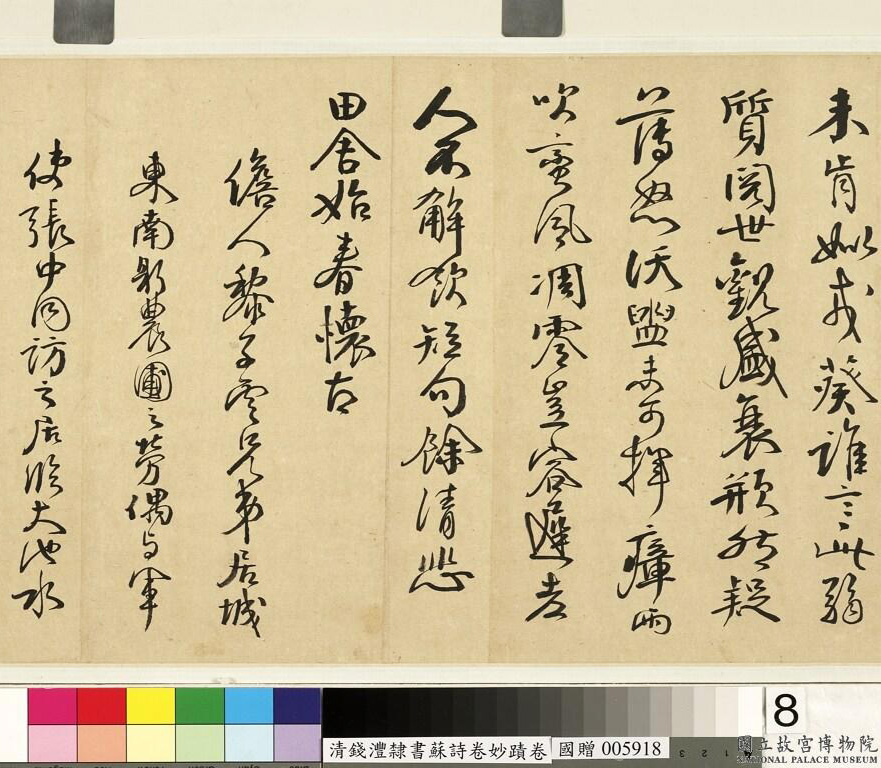 未肯姒戎葵誰言此弱
質閱世觀盛衰頩然疑
薄怒沃盥未可揮瘴雨
吹蠻風凋零豈容遲老
人不解飲短句餘清悲
田舍始春懷古
儋人黎子雲兄弟居城
東南躬農圃之勞偶与軍
使張中同訪之居臨大池水
清錢灃隸書蘇詩卷妙蹟卷
國贈 005918
8
國立故宮博物院
NATIONAL PALACE MUSEUM